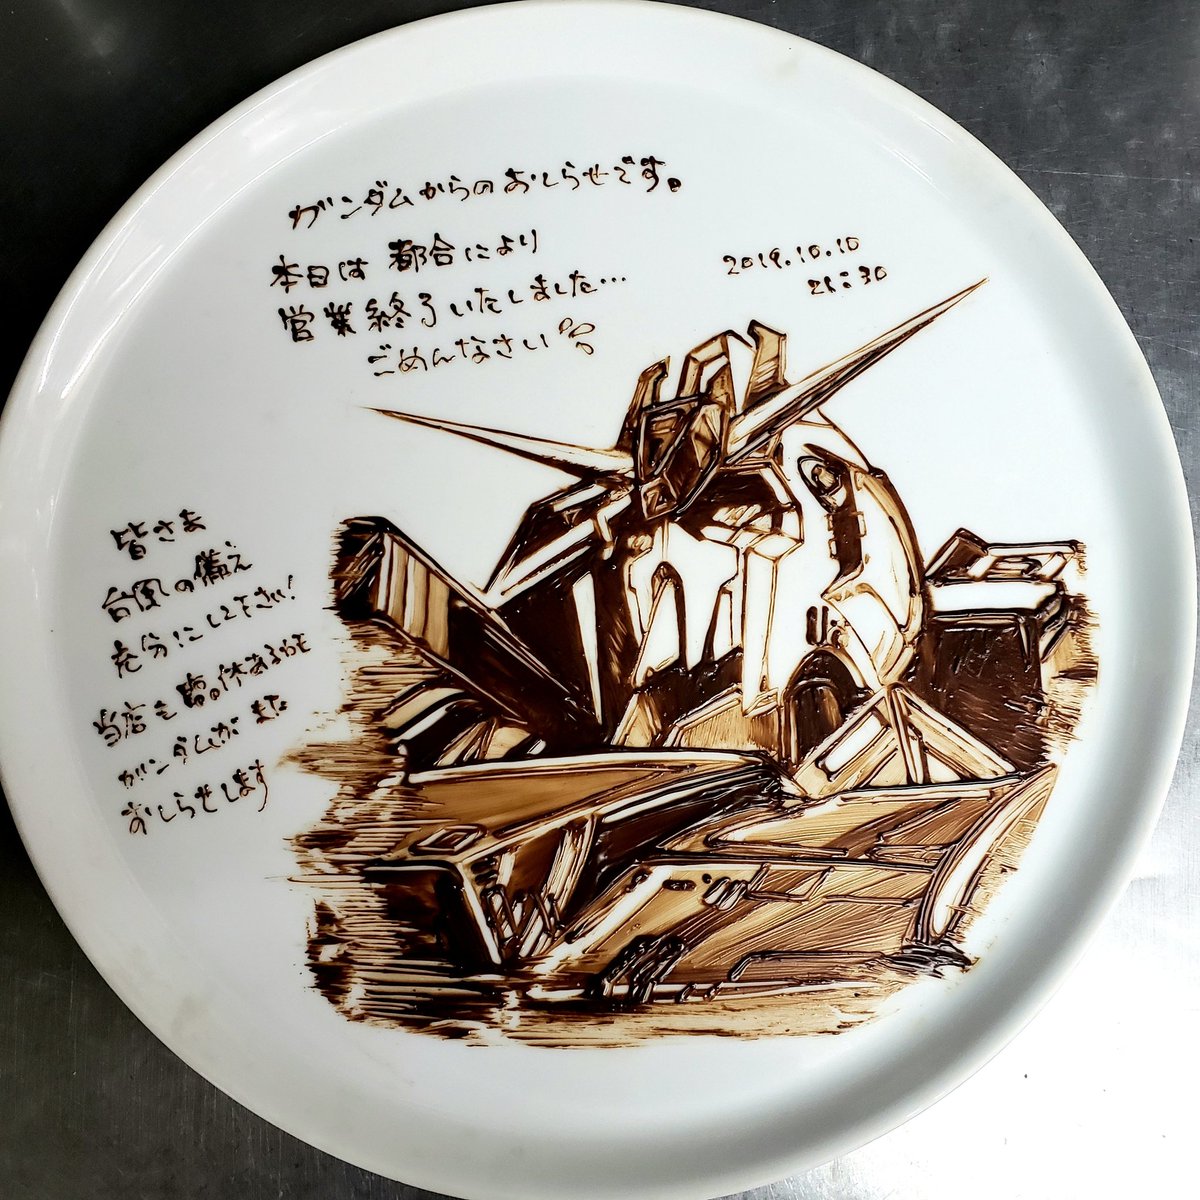 ガンダムからのおしらせです。
本日は都合により
営業終了いたしました…
ごめんなさい
2019.10.10
21:30
皆さま
台風の備え
充分にして下さい!
当店も臨時休あるかも
ガンダムがまた
おしらせします